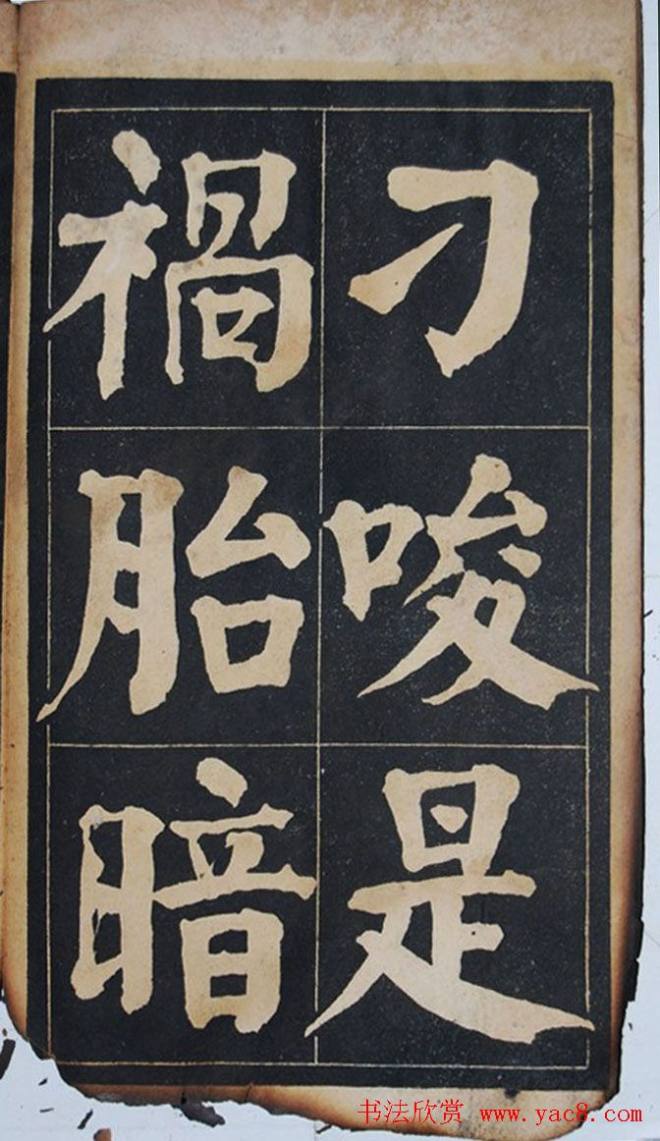 刁唆是
禍胎暗
书法欣赏 www.yac8.com